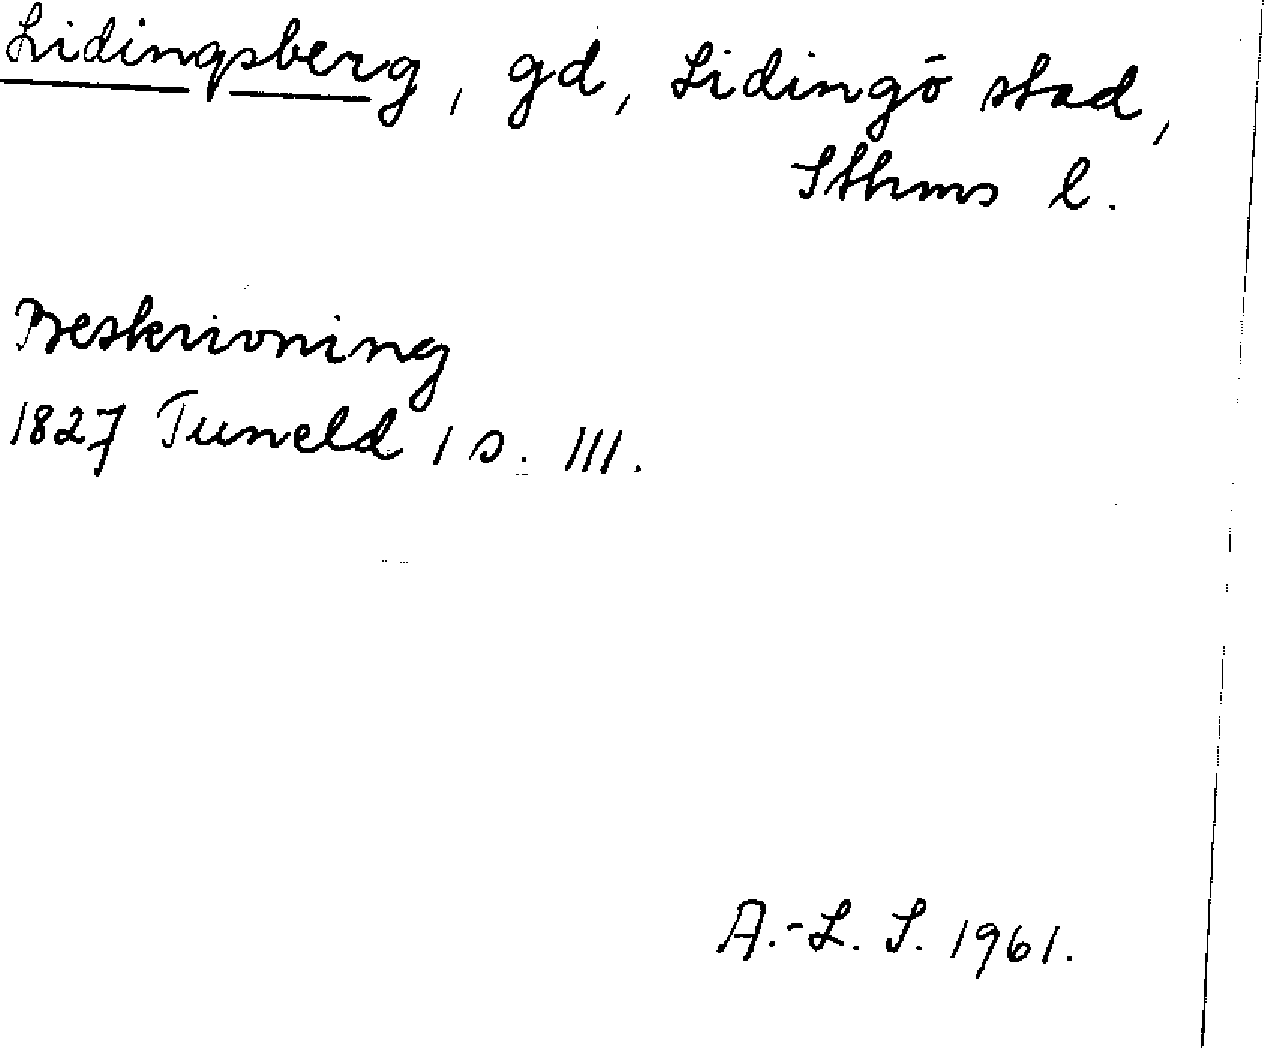 Lidingsberg, gd, Lidingö stad,
Sthms l.
Beskrivning
1827 Tuneld 1 s. 111.
A.-L. S. 1961.